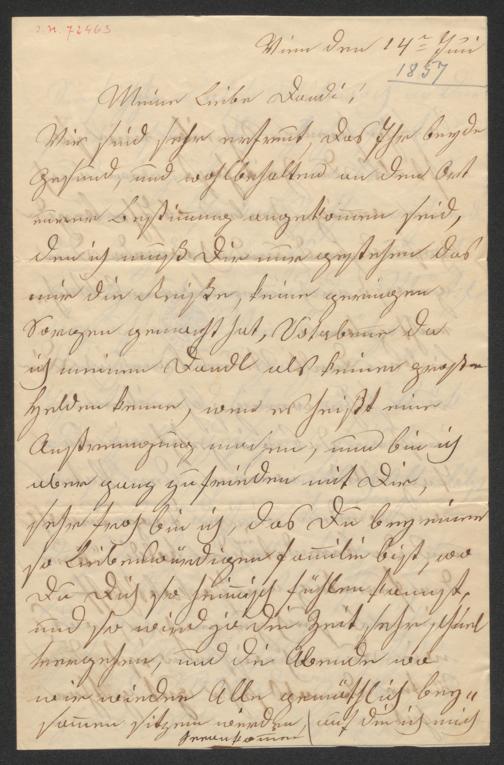 I.N. 72463
Wien den 14ten Juni
1857
Meine Liebe Dandi!
Wir sind sehr erfreut, das Ihr beyde
gesund, und wohlbehalten an den Ort
eurer Bestimung angekommen seid,
den ich muß Dir nur gestehen das
mir die Reiße, keine geringen
Sorgen gemacht hat, da
ich meinen Dandl als keinen große
Helden kenne, wen es heißt eine
Anstrenngung machen, nun bin ich
aber ganz zufrieden mit Dir,
sehr froh bin ich, das Du bey einer
so Liebenswürdigen Familie bist, wo
Du Dich so heimisch fühlen kannst,
und so wird ja die Zeit sehr schnel
vergehen, und die Abende wo
wir wieder Alle gemüthlich bey-
sammen sitzen werden, auf die ich mich